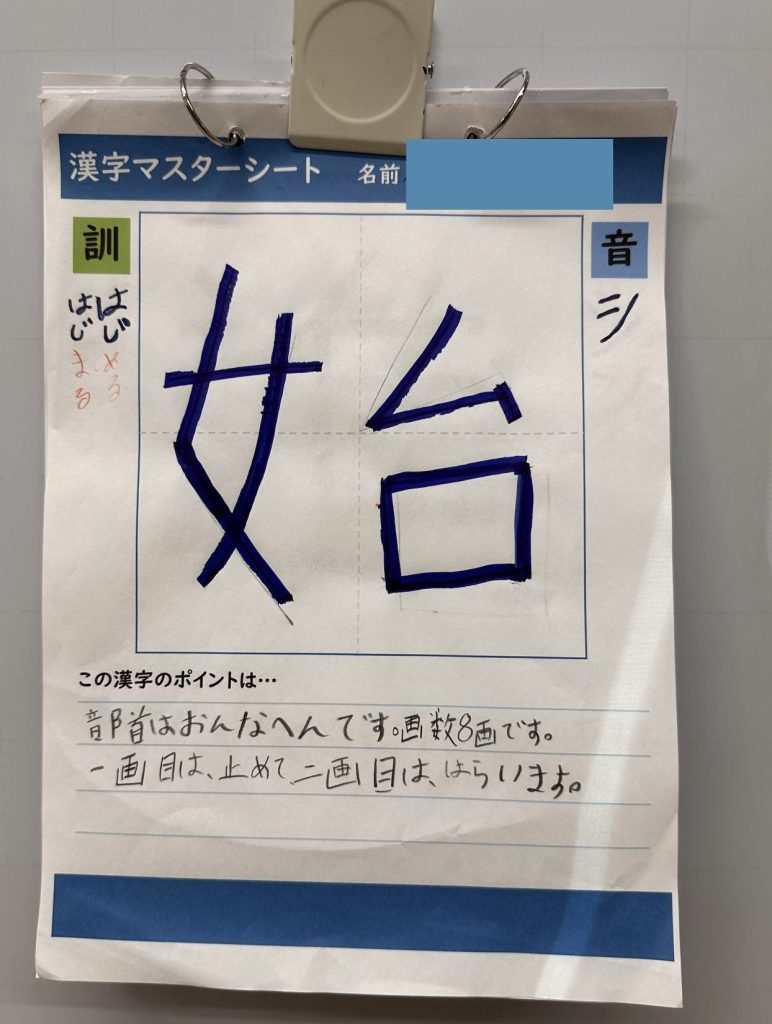 漢字マスターシート 名前
訓
はじめる
はじまる
始
音
シ
この漢字のポイントは…
部首はおんなへんです。画数8画です。
一画目は、止めて、二画目は、はらいます。